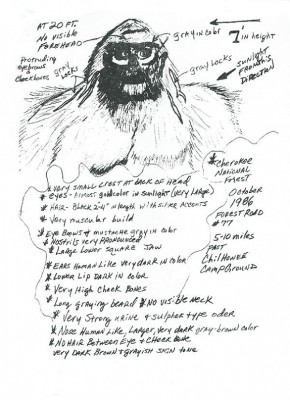 AT 20 FT.
NO VISIBLE
FOREHEAD
gray in color
7' in height
Protruding
eyebrows
Checkbones
gray locks
gray locks
sunlight
FROM THIS
DIRECTION
* very small crest at back of Head
* eyes - Almost goldcolor in sunlight (very Large)
* HAIR - Black 2-4" in length with silver accents
* Very muscular build
* Eye Brows & mustache gray in color
* Nostrils very PRONOUNCED
* Large Lower Square Jaw
* EARS Human Like very DARK in Color
* Lower Lip DARK in color
* Very High Cheek Bones
* Long graying beard * NO VISIBLE NECK
* Very Strong urine & sulpher type oder
* Nose Human Like, Larger, very dark gray-brown color
* NO HAIR Between Eye & Cheek Bone
very DARK Brown & Grayish skin tone
* Cherokee
NATIONAL
FOREST
October
1986
FOREST ROAD
#77
5-10 miles
PAST
CHILHOWEE
CAMPGROUND